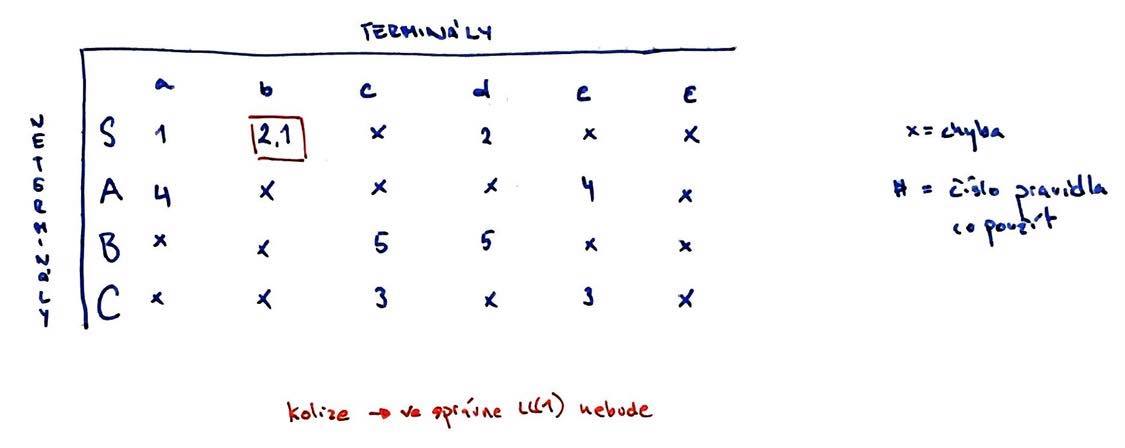 TERMINÁLY
NETERMINÁLY
a b c d e ε
S 1 2,1 x 2 x x
A 4 x x x 4 x
B x x 5 5 x x
C x x 3 x 3 x
x = chyba
# = číslo pravidla
co použít
kolize → ve správne LL(1) nebude